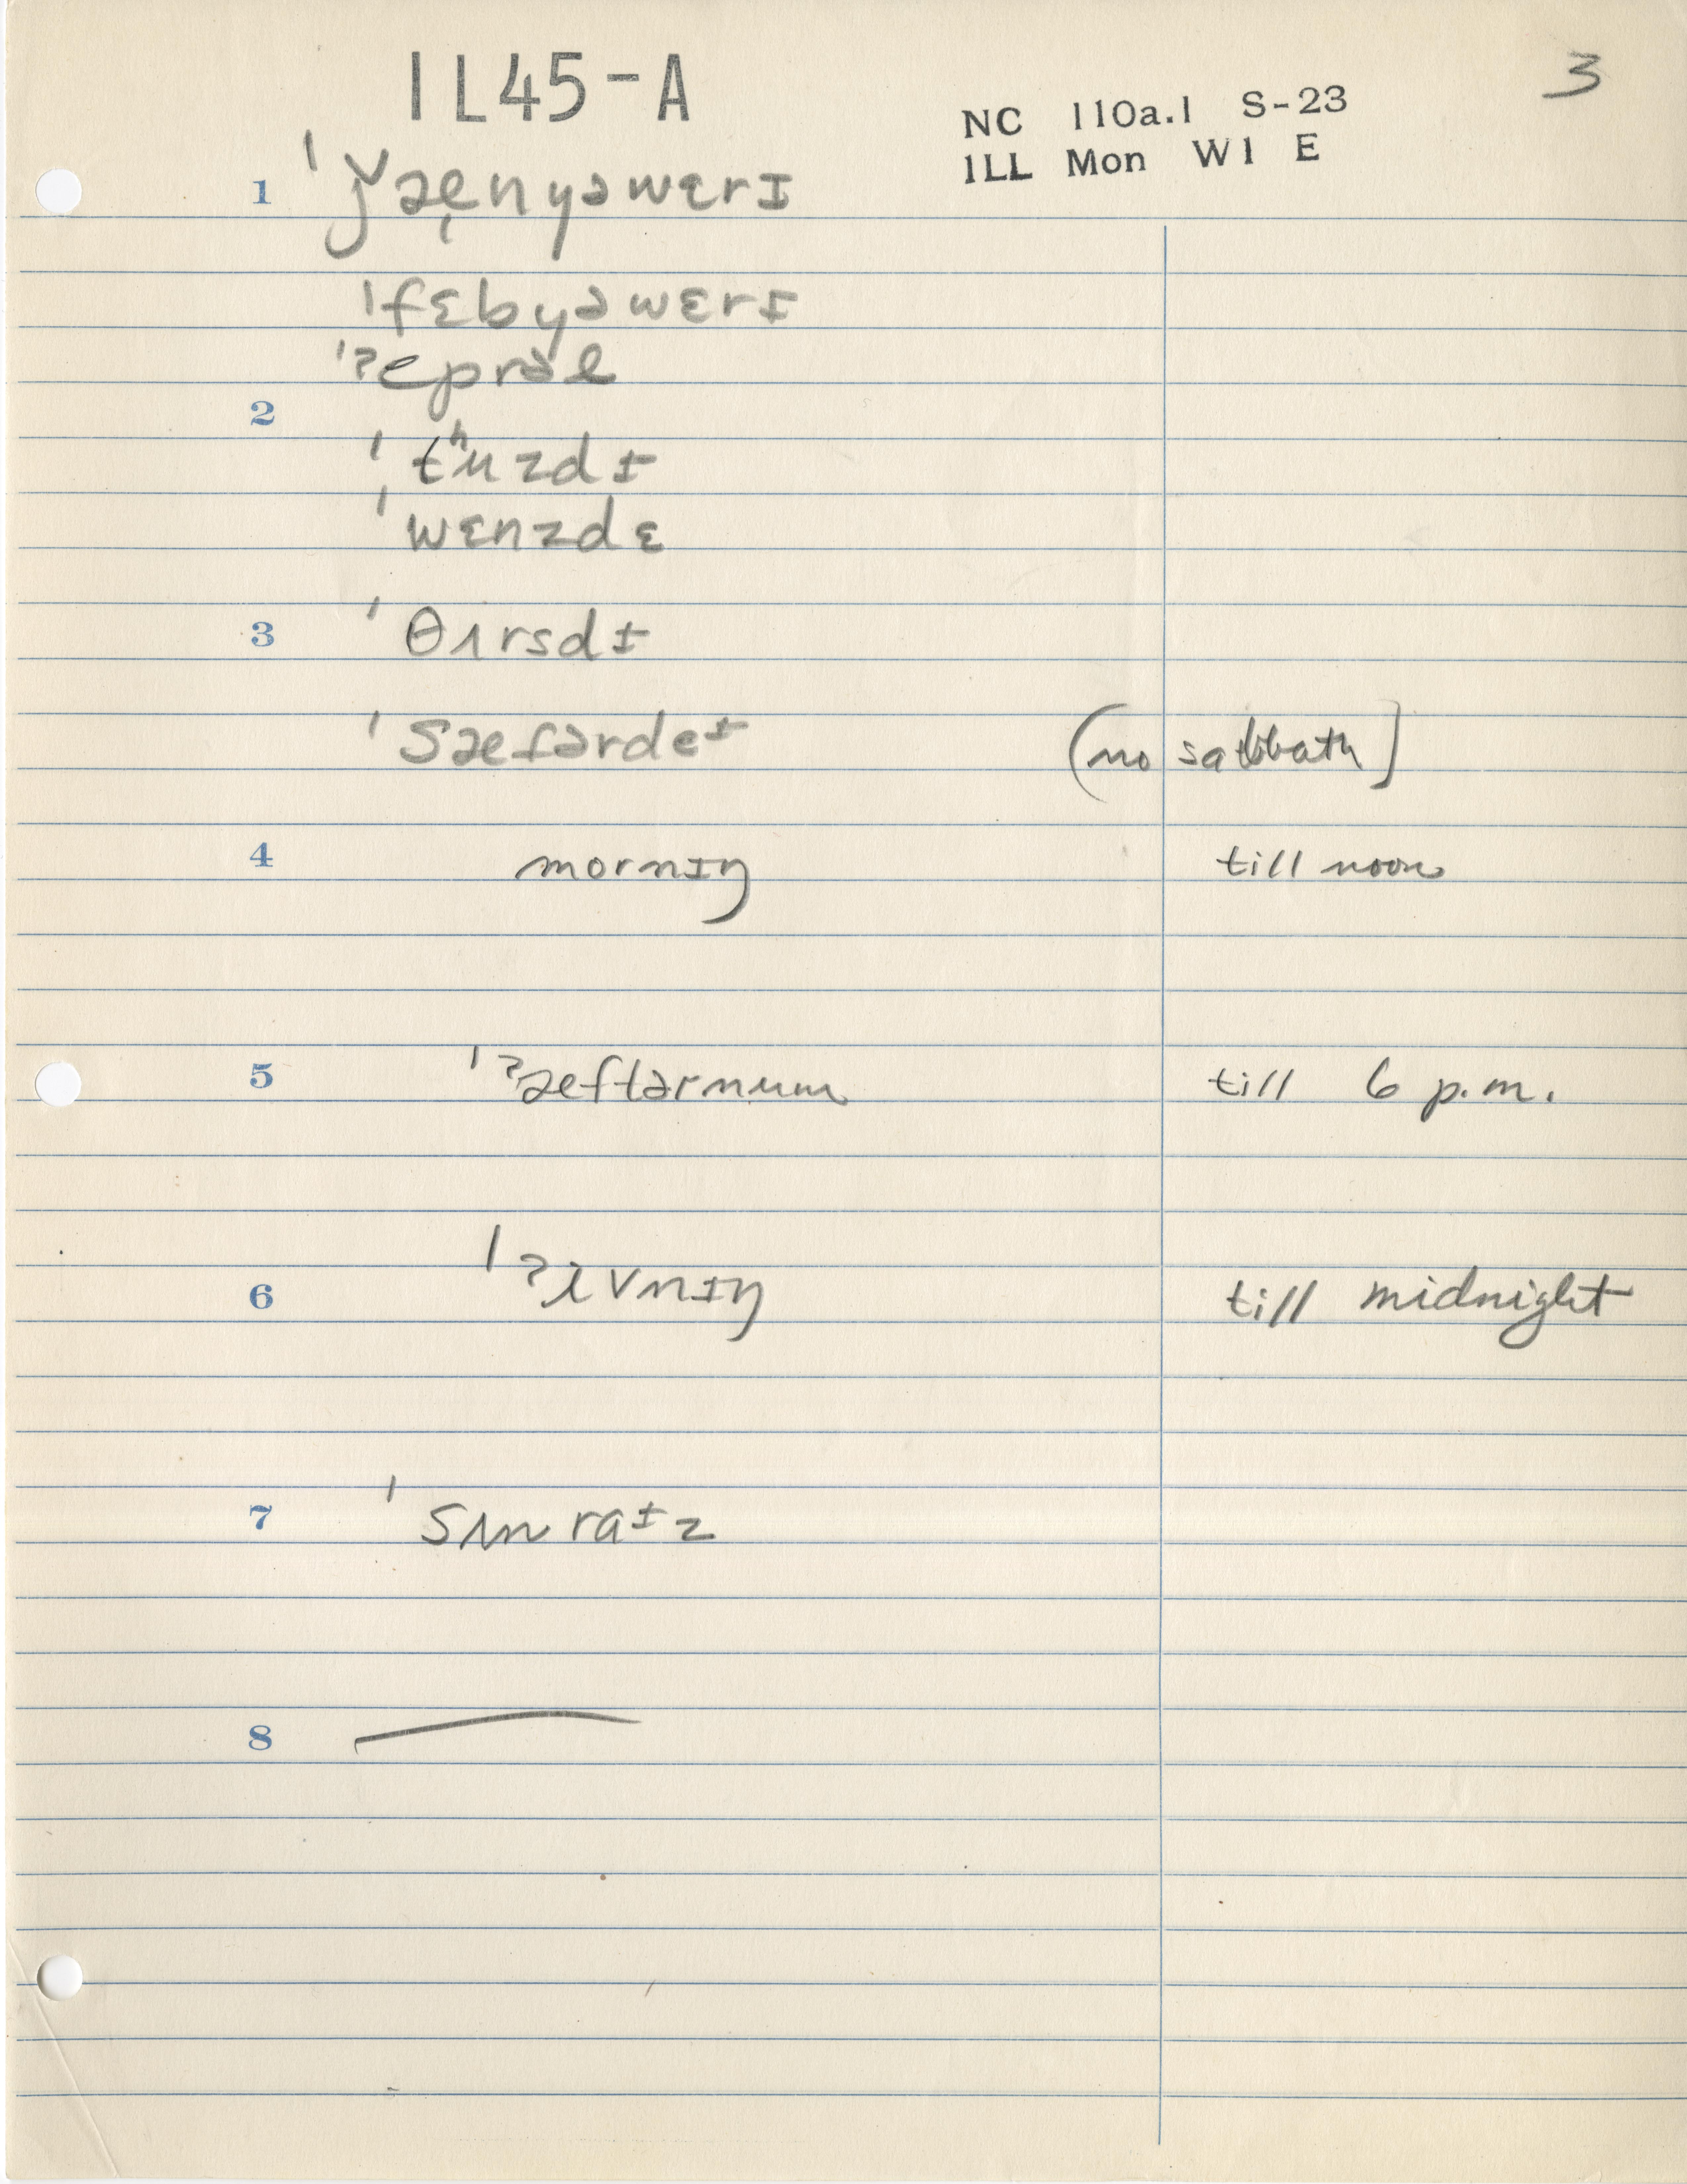 1L45-A
3
NC 110a.1 S-23
1LL Mon W1 E
1 ˈǰæ̨nyəwɛrɪ
ˈfɛbyəwɛrɪ
ˈʔeprəl
2
ˈtʰuzdɪ
ˈwɛnzdɛ
3 ˈθɪrsdɪ
ˈsæfərdeɪ (no sabbath]
4 mornɪŋ till noon
5 ˈʔæftərnun till 6 p.m.
6 ˈʔivnɪŋ till midnight
7 ˈsʌnraɪz
8